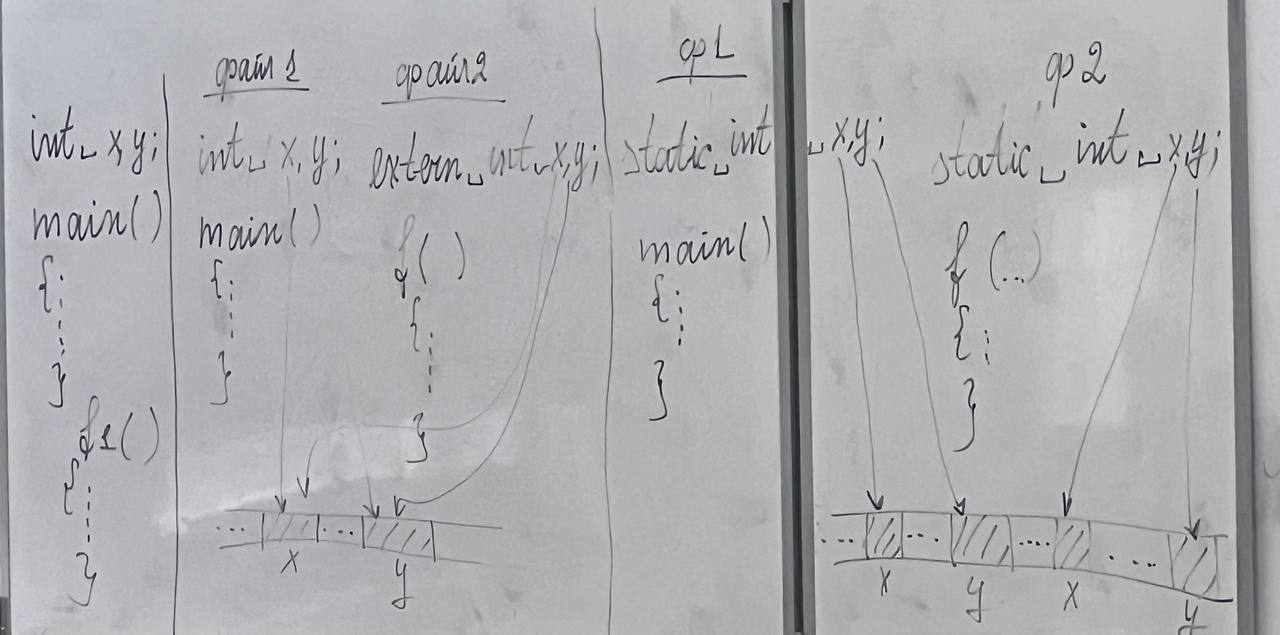 int␣x,y;
main()
{
}
f1()
{
}
файл 1
int␣x,y;
main()
{
}
файл 2
extern␣int␣x,y;
f()
{
}
... ...
x y
ф1
static␣int␣x,y;
main()
{
}
ф2
static␣int␣x,y;
f(...)
{
}
... ... .... ...
x y x y